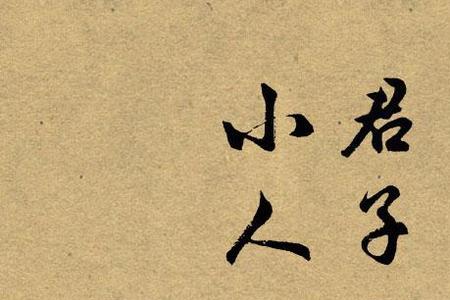 君子
小人